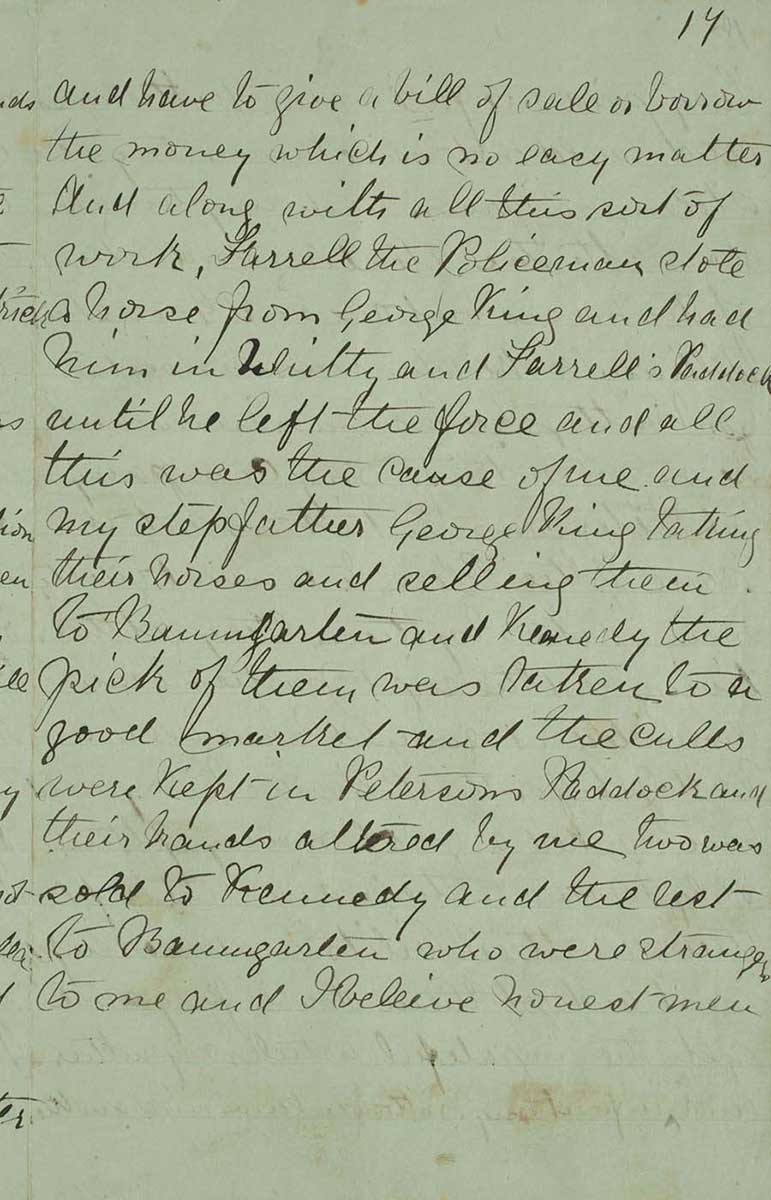 14
and have to give a bill of sale or borrow
the money which is no easy matter
And along with all this sort of
work, Farrell the Policeman stole
a horse from George King and had
him in Whitty and Farrell's Paddock
until he left the force and all
this was the cause of me and
my stepfather George King taking
their horses and selling them
to Baumgarten and Kennedy the
pick of them was taken to a
good market and the culls
were kept in Petersons Paddock and
their brands altered by me two was
sold to Kennedy and the rest
to Baumgarten who were strangers
to me and I beleive honest men